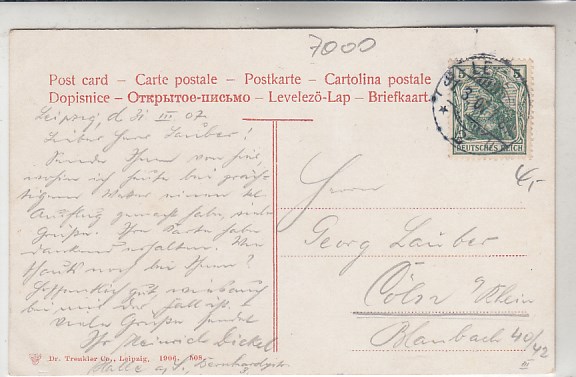 7000
Post card – Carte postale – Postkarte – Cartolina postale
Dopisnice – Открытое-письмо – Levelező-Lap – Briefkaart
DEUTSCHES REICH
4,-
Leipzig, d 31 III 07
Lieber Herr Lauber!
Sende Ihnen von hier,
wohin ich heute bei präch-
tigem Wetter einen
Ausflug gemacht habe, viele
Grüße. Ihre Karte habe
dankend erhalten. Wie
schauts noch bei Ihnen?
Hoffentlich gut, was auch
bei mir der Fall ist.
Viele Grüße sendet
Ihr Heinrich Dickel
Halle a. S., Bernhardystr.
Herrn
Georg Lauber
Cöln a/Rhein
Blaubach 40/42
III
Dr. Trenkler Co., Leipzig, 1906. 508.